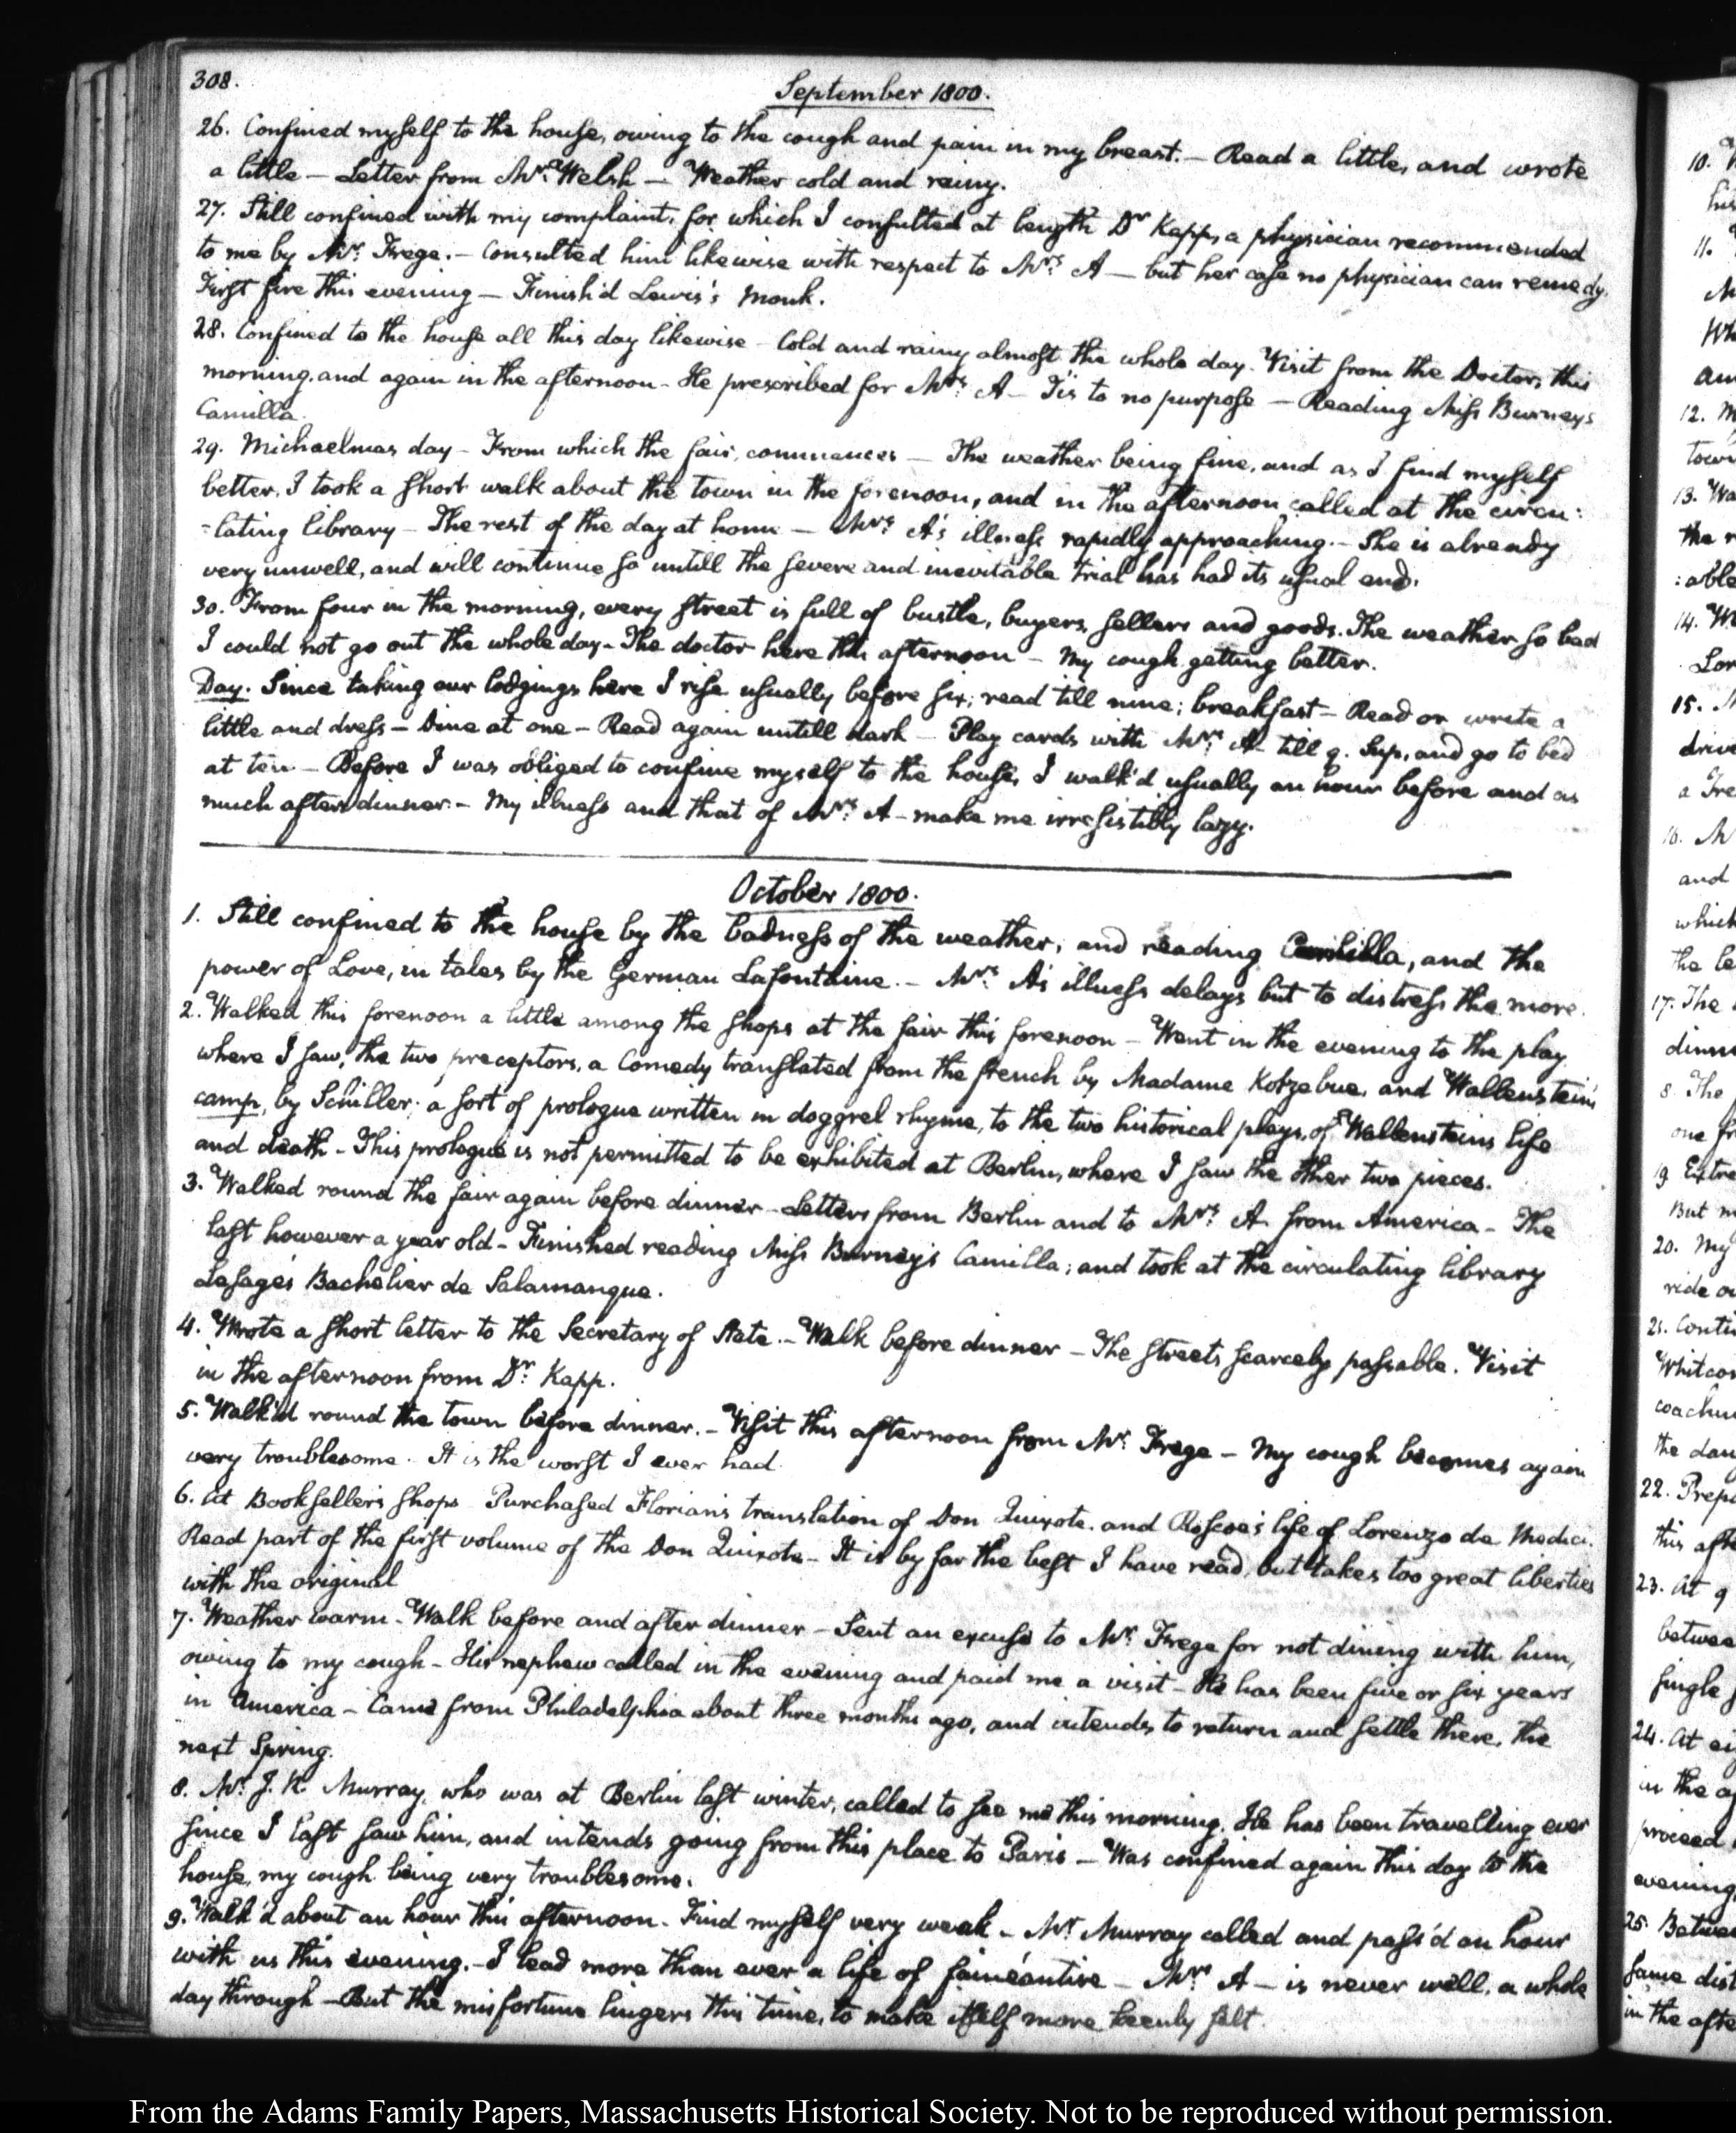 308.
September 1800.
26. Confined myself to the house, owing to the cough and pain in my breast. — Read a little, and wrote
a little — Letter from Mr. Welsh — Weather cold and rainy.
27. Still confined with my complaint, for which I consulted at length Dr Kapp, a physician recommended
to me by Mr. Frege. — Consulted him likewise with respect to Mrs. A — but her case no physician can remedy.
First fire this evening — Finish'd Lewis's Monk.
28. Confined to the house all this day likewise — Cold and rainy almost the whole day. Visit from the Doctor, this
morning, and again in the afternoon — He prescribed for Mrs. A — Tis to no purpose — Reading Miss Burneys
Camilla.
29. Michaelmas day — From which the fair, commences — The weather being fine, and as I find myself
better, I took a short walk about the town in the forenoon, and in the afternoon called at the circu:
:lating library — The rest of the day at home — Mrs. A's illness rapidly approaching. — She is already
very unwell, and will continue so untill the severe and inevitable trial has had its usual end.
30. From four in the morning, every street is full of bustle, buyers, sellers and goods. The weather so bad
I could not go out the whole day — The doctor here this afternoon — My cough getting better.
Day. Since taking our lodgings here I rise usually before six; read till nine; breakfast — Read or write a
little and dress — Dine at one — Read again untill dark — Play cards with Mrs. A — till 9. Sup, and go to bed
at ten — Before I was obliged to confine myself to the house, I walk'd usually an hour before and as
much after dinner. — My illness and that of Mrs. A — make me irresistibly lazy.
October 1800.
1. Still confined to the house by the badness of the weather, and reading Camilla, and the
power of Love, in tales by the German Lafontaine. — Mrs. A's illness delays but to distress the more.
2. Walked this forenoon a little among the shops at the fair this forenoon — Went in the evening to the play
where I saw, the two preceptors, a Comedy translated from the french by Madame Kotzebue, and Wallensteins
camp, by Schiller; a sort of prologue written in doggrel rhyme, to the two historical plays, of Wallensteins life
and death — This prologue is not permitted to be exhibited at Berlin, where I saw the other two pieces.
3. Walked round the fair again before dinner — Letters from Berlin and to Mrs. A from America — The
last however a year old — Finished reading Miss Burney's Camilla; and took at the circulating library
Lesage's Bachelier de Salamanque.
4. Wrote a short letter to the Secretary of State. — Walk before dinner — The streets scarcely passable. Visit
in the afternoon from Dr. Kapp.
5. Walk'd round the town before dinner. — Visit this afternoon from Mr. Frege — My cough becomes again
very troublesome. It is the worst I ever had.
6. At Booksellers shops Purchased Florian's translation of Don Quixote. and Roscoe's life of Lorenzo de Medici.
Read part of the first volume of the Don Quixote — It is by far the best I have read, but takes too great liberties
with the original
7. Weather warm — Walk before and after dinner — Sent an excuse to Mr. Frege for not dining with him,
owing to my cough — His nephew called in the evening and paid me a visit — He has been five or six years
in America — Came from Philadelphia about three months ago, and intends to return and settle there, the
next Spring.
8. Mr. J. R. Murray, who was at Berlin last winter, called to see me this morning. He has been travelling ever
since I last saw him, and intends going from this place to Paris — Was confined again this day to the
house, my cough being very troublesome.
9. Walk'd about an hour this afternoon. Find myself very weak — Mr Murray called and pass'd an hour
with us this evening. — I lead more than ever a life of fainéantise — Mrs. A — is never well, a whole
day through — But the misfortune lingers this time, to make itself more keenly felt.
10.
11.
12.
town
13. Wa
the r
:able
14.
15.
drive
and
which
17. The
dinne
The
one
19. Extre
But
20. My
ride
21. Conti
Whitcom
coachm
the
22. Prepa
this afte
23. At 9
between
single
24. At
in the
proceed
evening
25. Betwee
same dist
in the afte
From the Adams Family Papers, Massachusetts Historical Society. Not to be reproduced without permission.